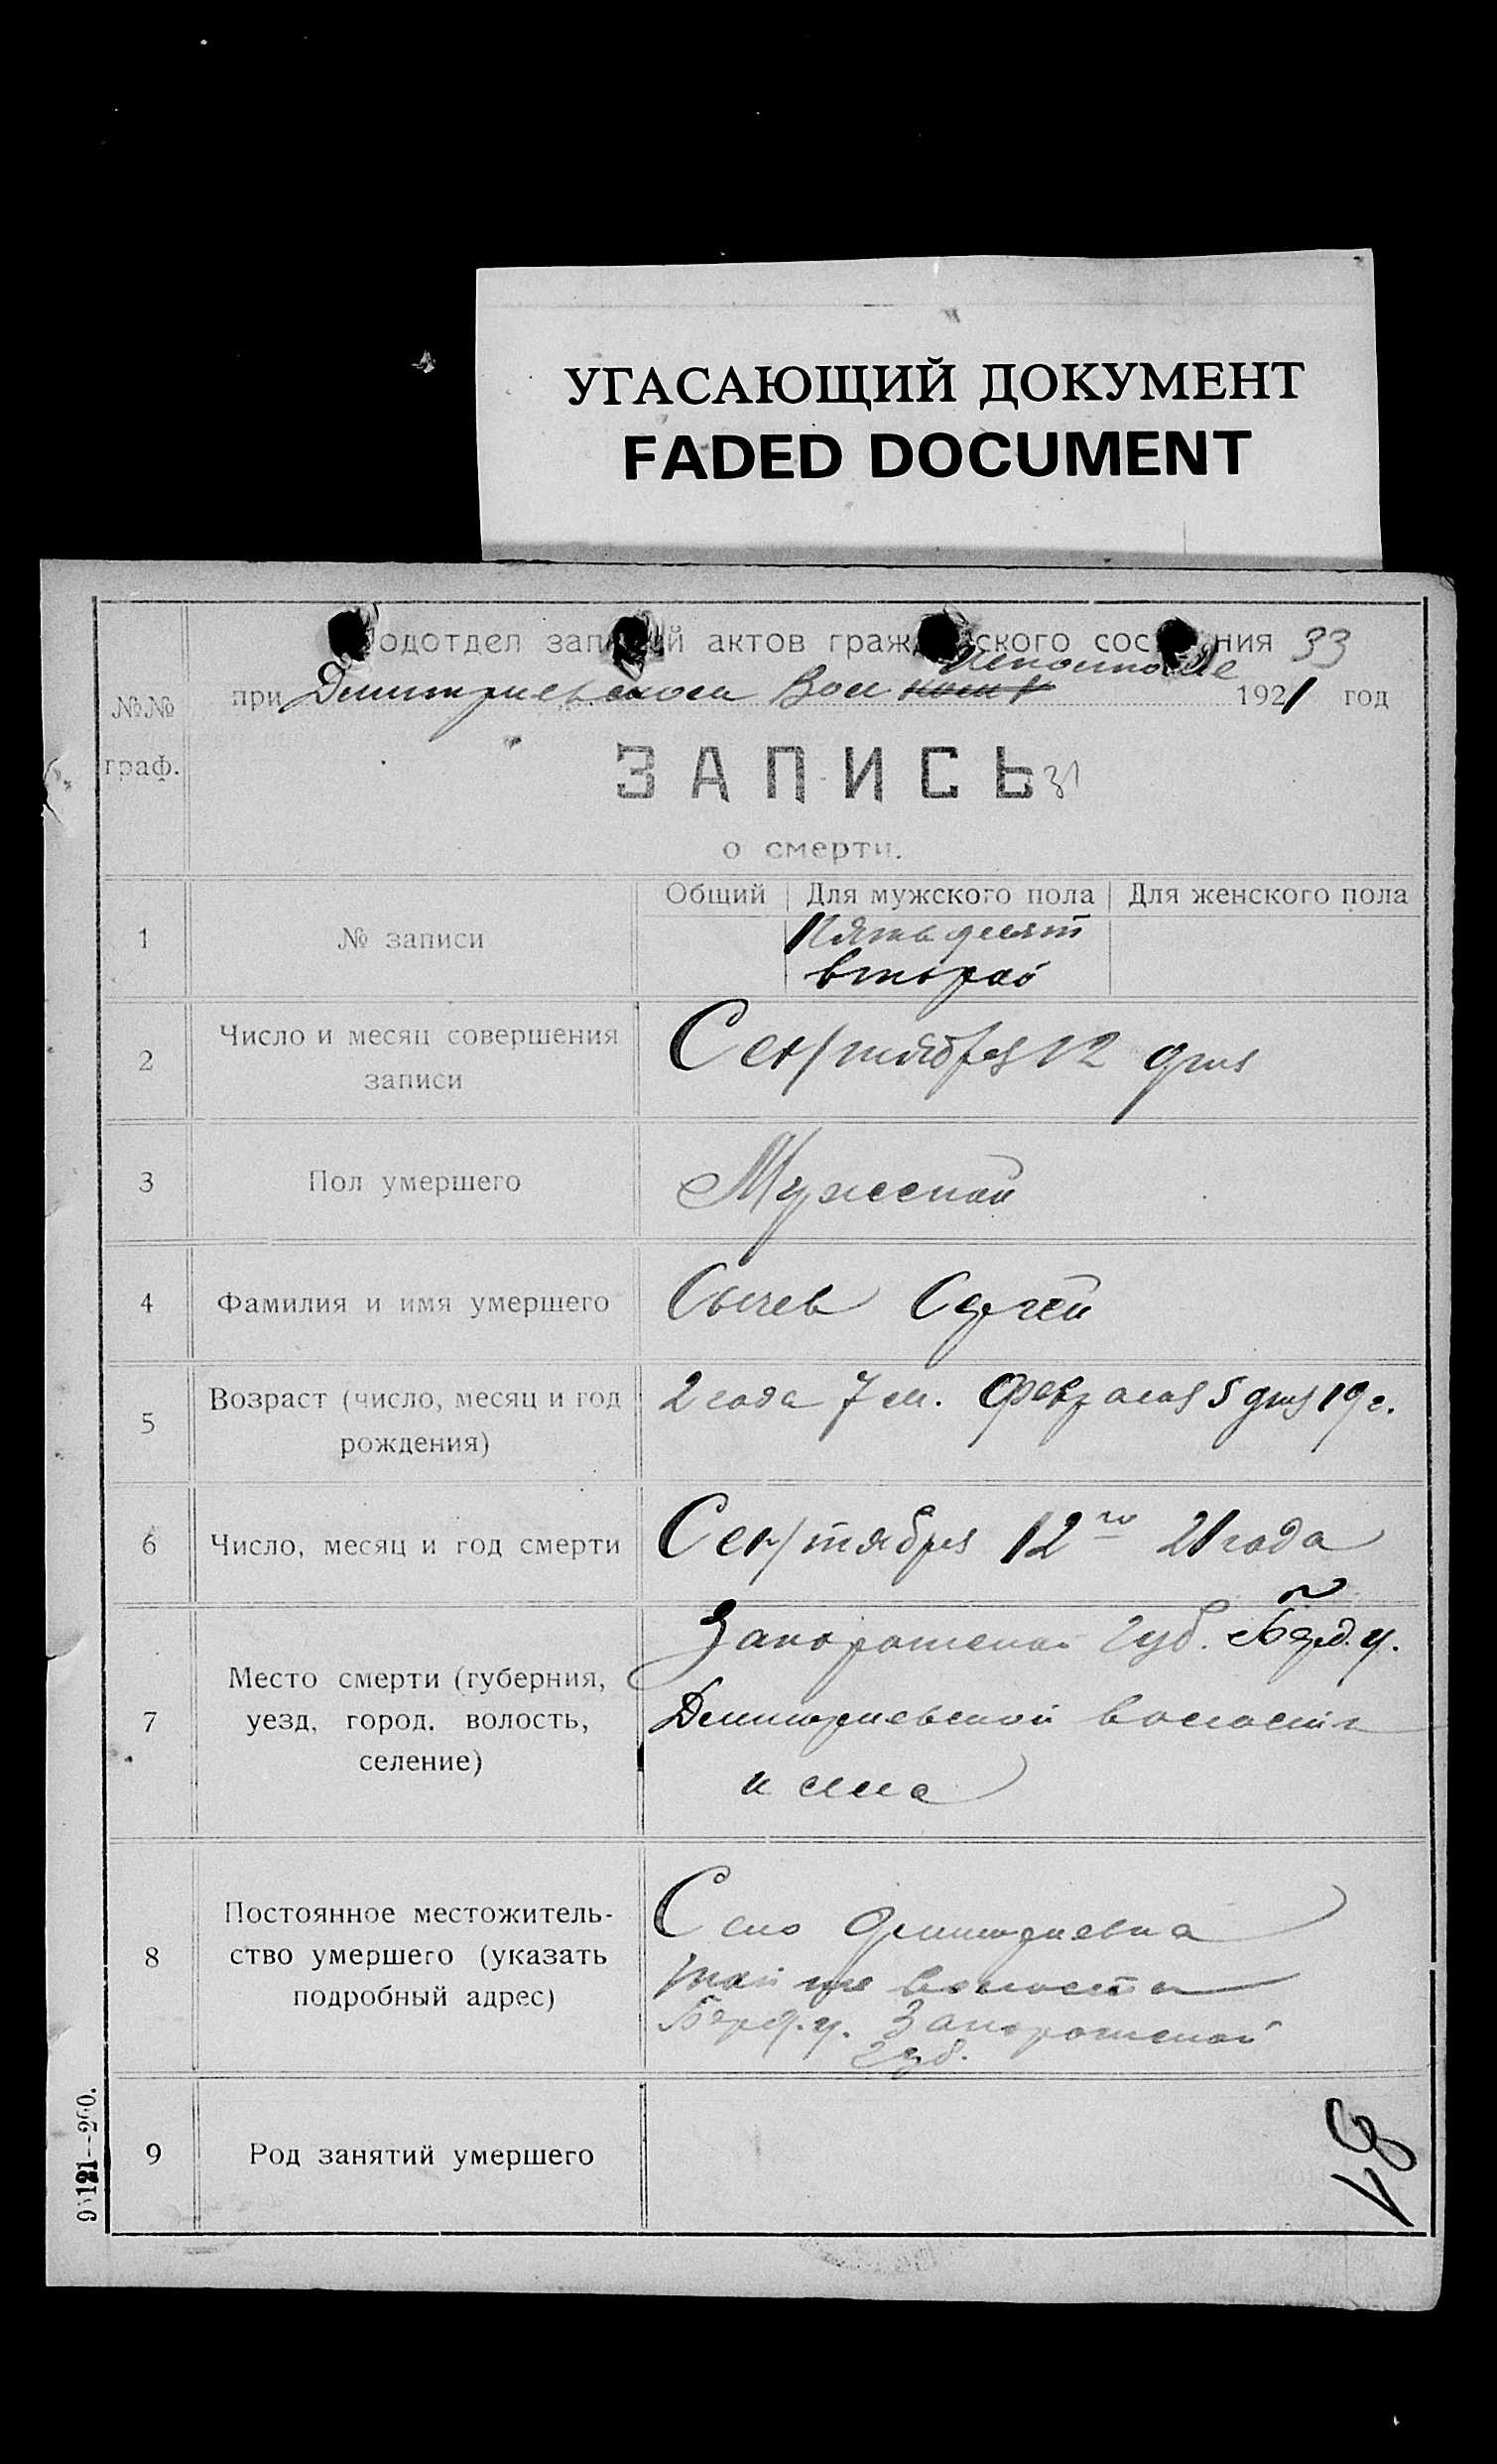 УГАСАЮЩИЙ ДОКУМЕНТ
FADED DOCUMENT
Подотдел записей актов гражданского состояния 33
при Дмитриевском Вол Исполкоме 1921 год
№№ граф.
ЗАПИСЬ 31
о смерти.
Общий Для мужского пола Для женского пола
1 № записи Пятьдесят
второй
2 Число и месяц совершения
записи
Сентября 12 дня
3 Пол умершего Мужской
4 Фамилия и имя умершего Сычев Сергей
5 Возраст (число, месяц и год
рождения)
2 года 7 м. Февраля 5 дня 19 г.
6 Число, месяц и год смерти Сентября 12го 21 года
7 Место смерти (губерния,
уезд, город, волость,
селение)
Запорожской Губ. Берд. у.
Дмитриевской волости
и села
8 Постоянное местожитель-
ство умершего (указать
подробный адрес)
Село Дмитриевка
той же волости
Берд. у. Запорожской
Губ.
9 Род занятий умершего